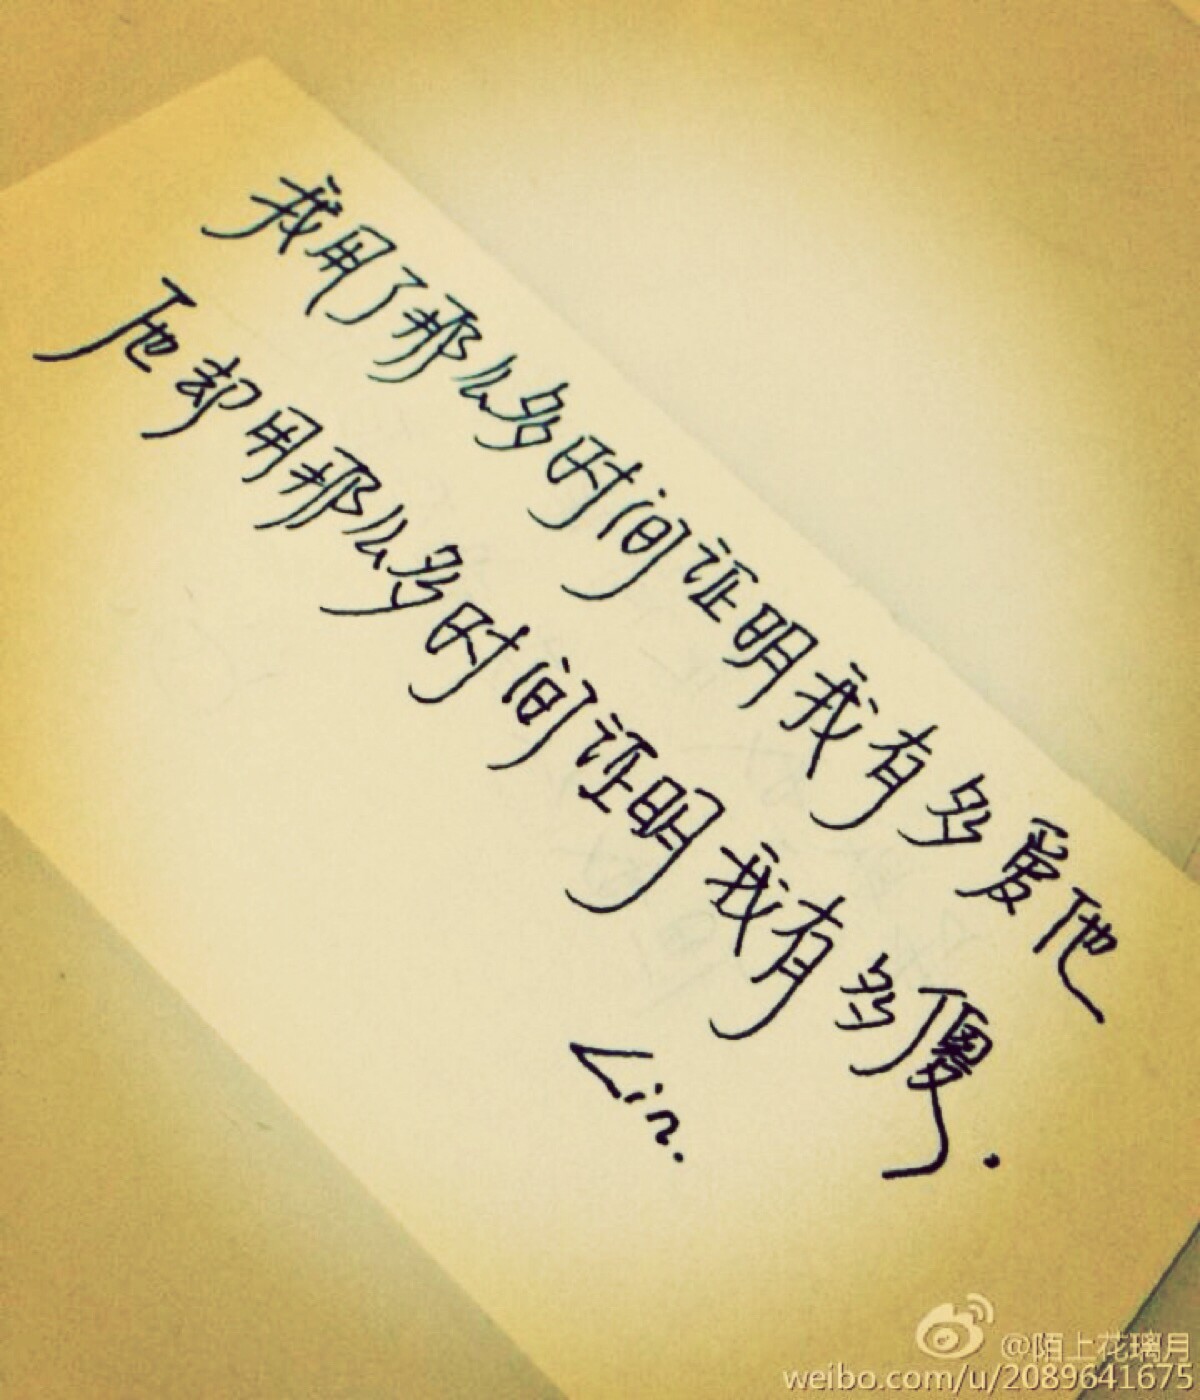 我用了那么多时间证明我有多爱他
他却用那么多时间证明我有多傻.
Lin.
@陌上花璃月
weibo.com/u/2089641675